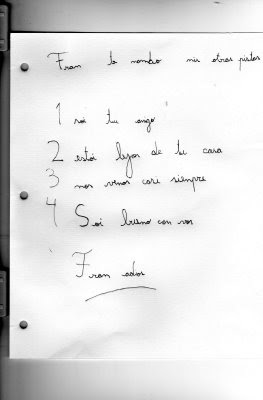 Fran te nombro mis otras pistas
1 soi tu amigo
2 estoi lejos de tu casa
3 nos vimos casi siempre
4 Soi bueno con vos
Fran adios